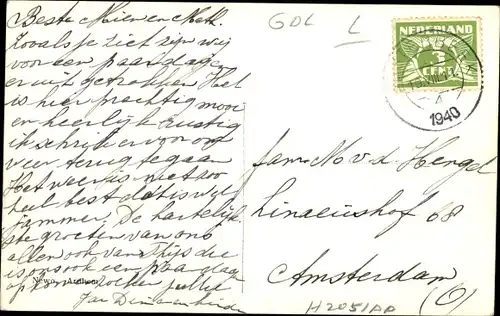 Beste Mien en Mek.
Zooals je ziet zijn wij
voor een paar dagen
er uit getrokken. Het
is hier prachtig mooi
en heerlijk rustig
ik schrijf er voor om
weer terug te gaan
Het weer is niet zoo
heel best dat is wel
jammer. De hartelijk-
ste groeten van ons
allen ook van Thijs die
is ons ook een paar dagen
op komen zoeken jullie
Jan
GDL
L
NEDERLAND
3
CENT
1940
fam. N. v. d. Hengel
Linaeushof 68
Amsterdam
(O)
H2051AA